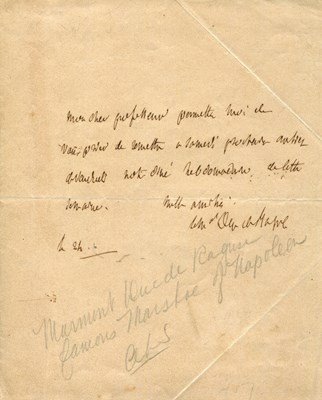 mon cher professeur permettez moi de
vous prier de remettre a samedi prochain
notre diné hebdomadaire de cette
semaine. mille amitiés
le mal Duc de Raguse
le 24
Marmont Duc de Raguse
famous Marshal of Napoleon